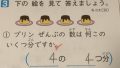 3 下の絵を見て答えましょう。
① プリン ぜんぶの 数は 何この
いくつ分ですか。
( 4の 4つ分 )